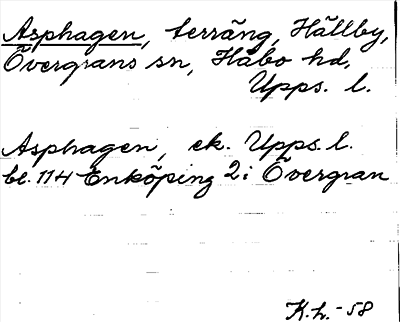 Asphagen, terräng, Hällby,
Övergrans sn, Håbo hd,
Upps. l.
Asphagen, ek. Upps. l.
bl. 114 Enköping 2i Övergran
K.L.-58